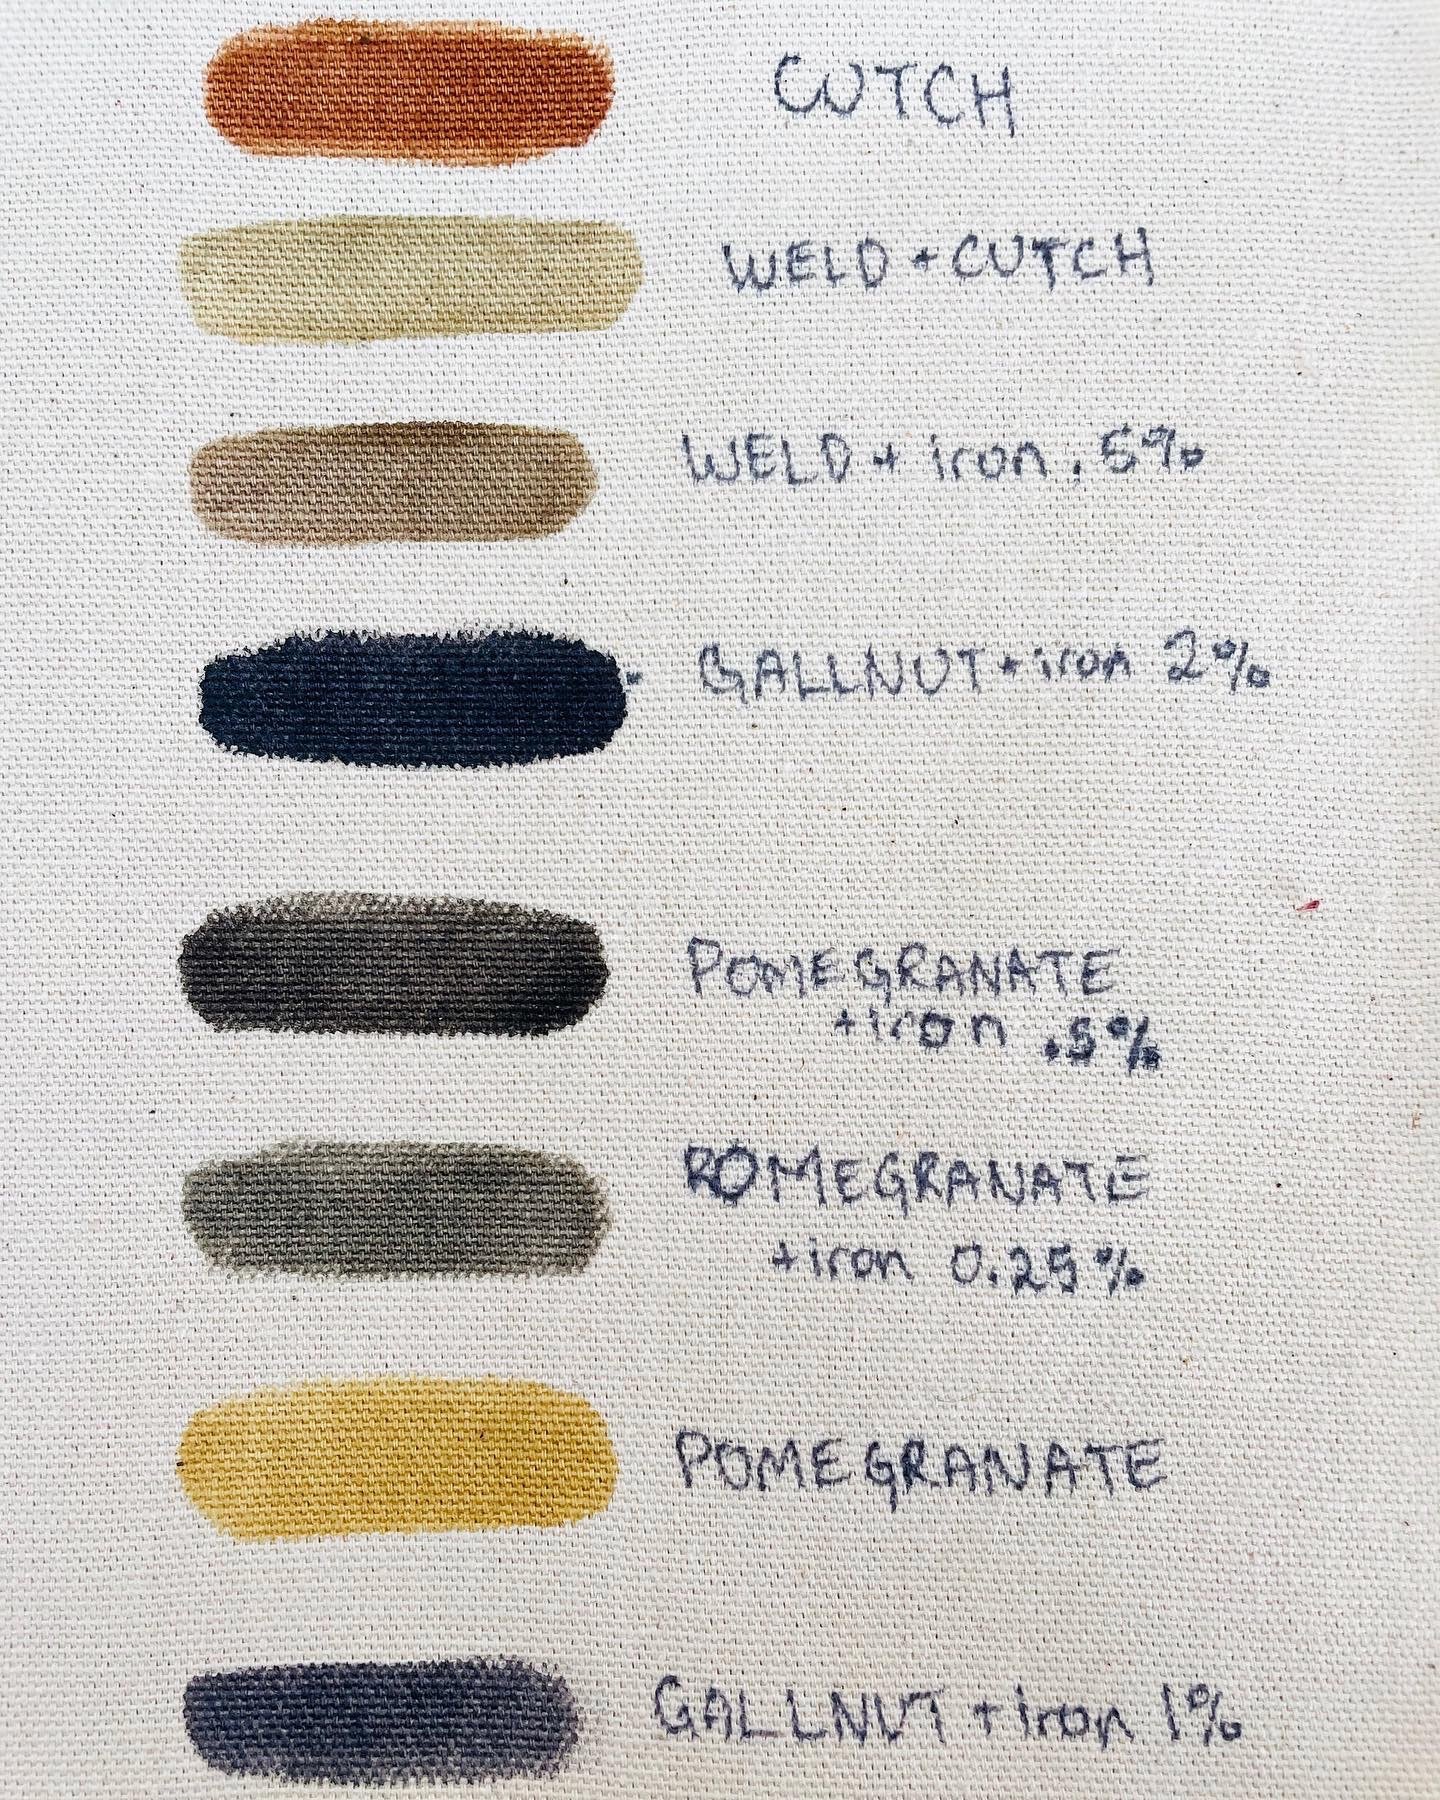 CUTCH
WELD + CUTCH
WELD + iron .5%
GALLNUT + iron 2%
POMEGRANATE
+ iron .5%
POMEGRANATE
+ iron 0.25%
POMEGRANATE
GALLNUT + iron 1%